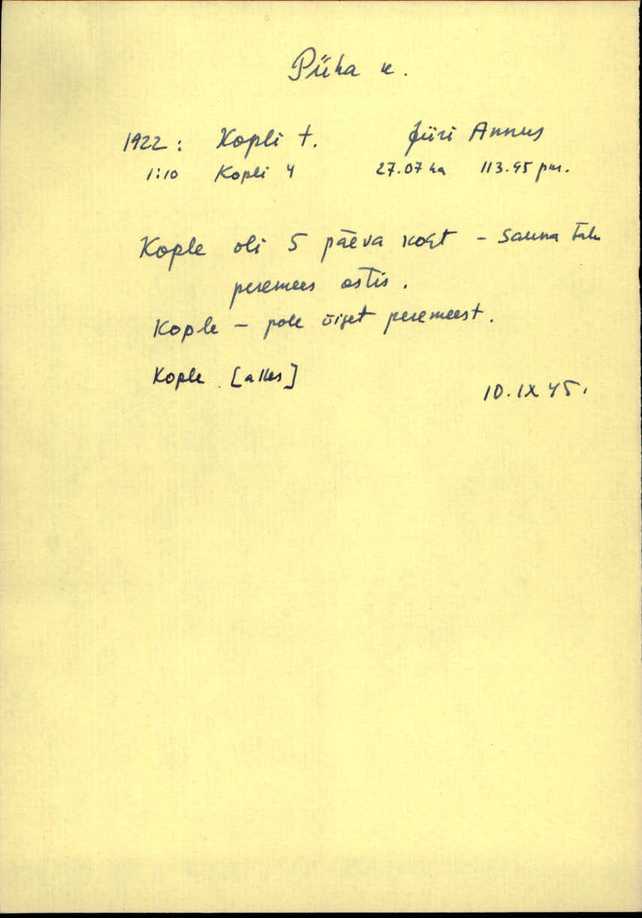 Püha k.
1922: Kopli t. Jüri Annus
1:10 Kopli 4 27.07 ha 113.95 pur.
Kople oli 5 päeva koht – Sauna talu
peremees ostis.
Kople – pole õiget peremeest.
Kople [alles]
10.IX 45.